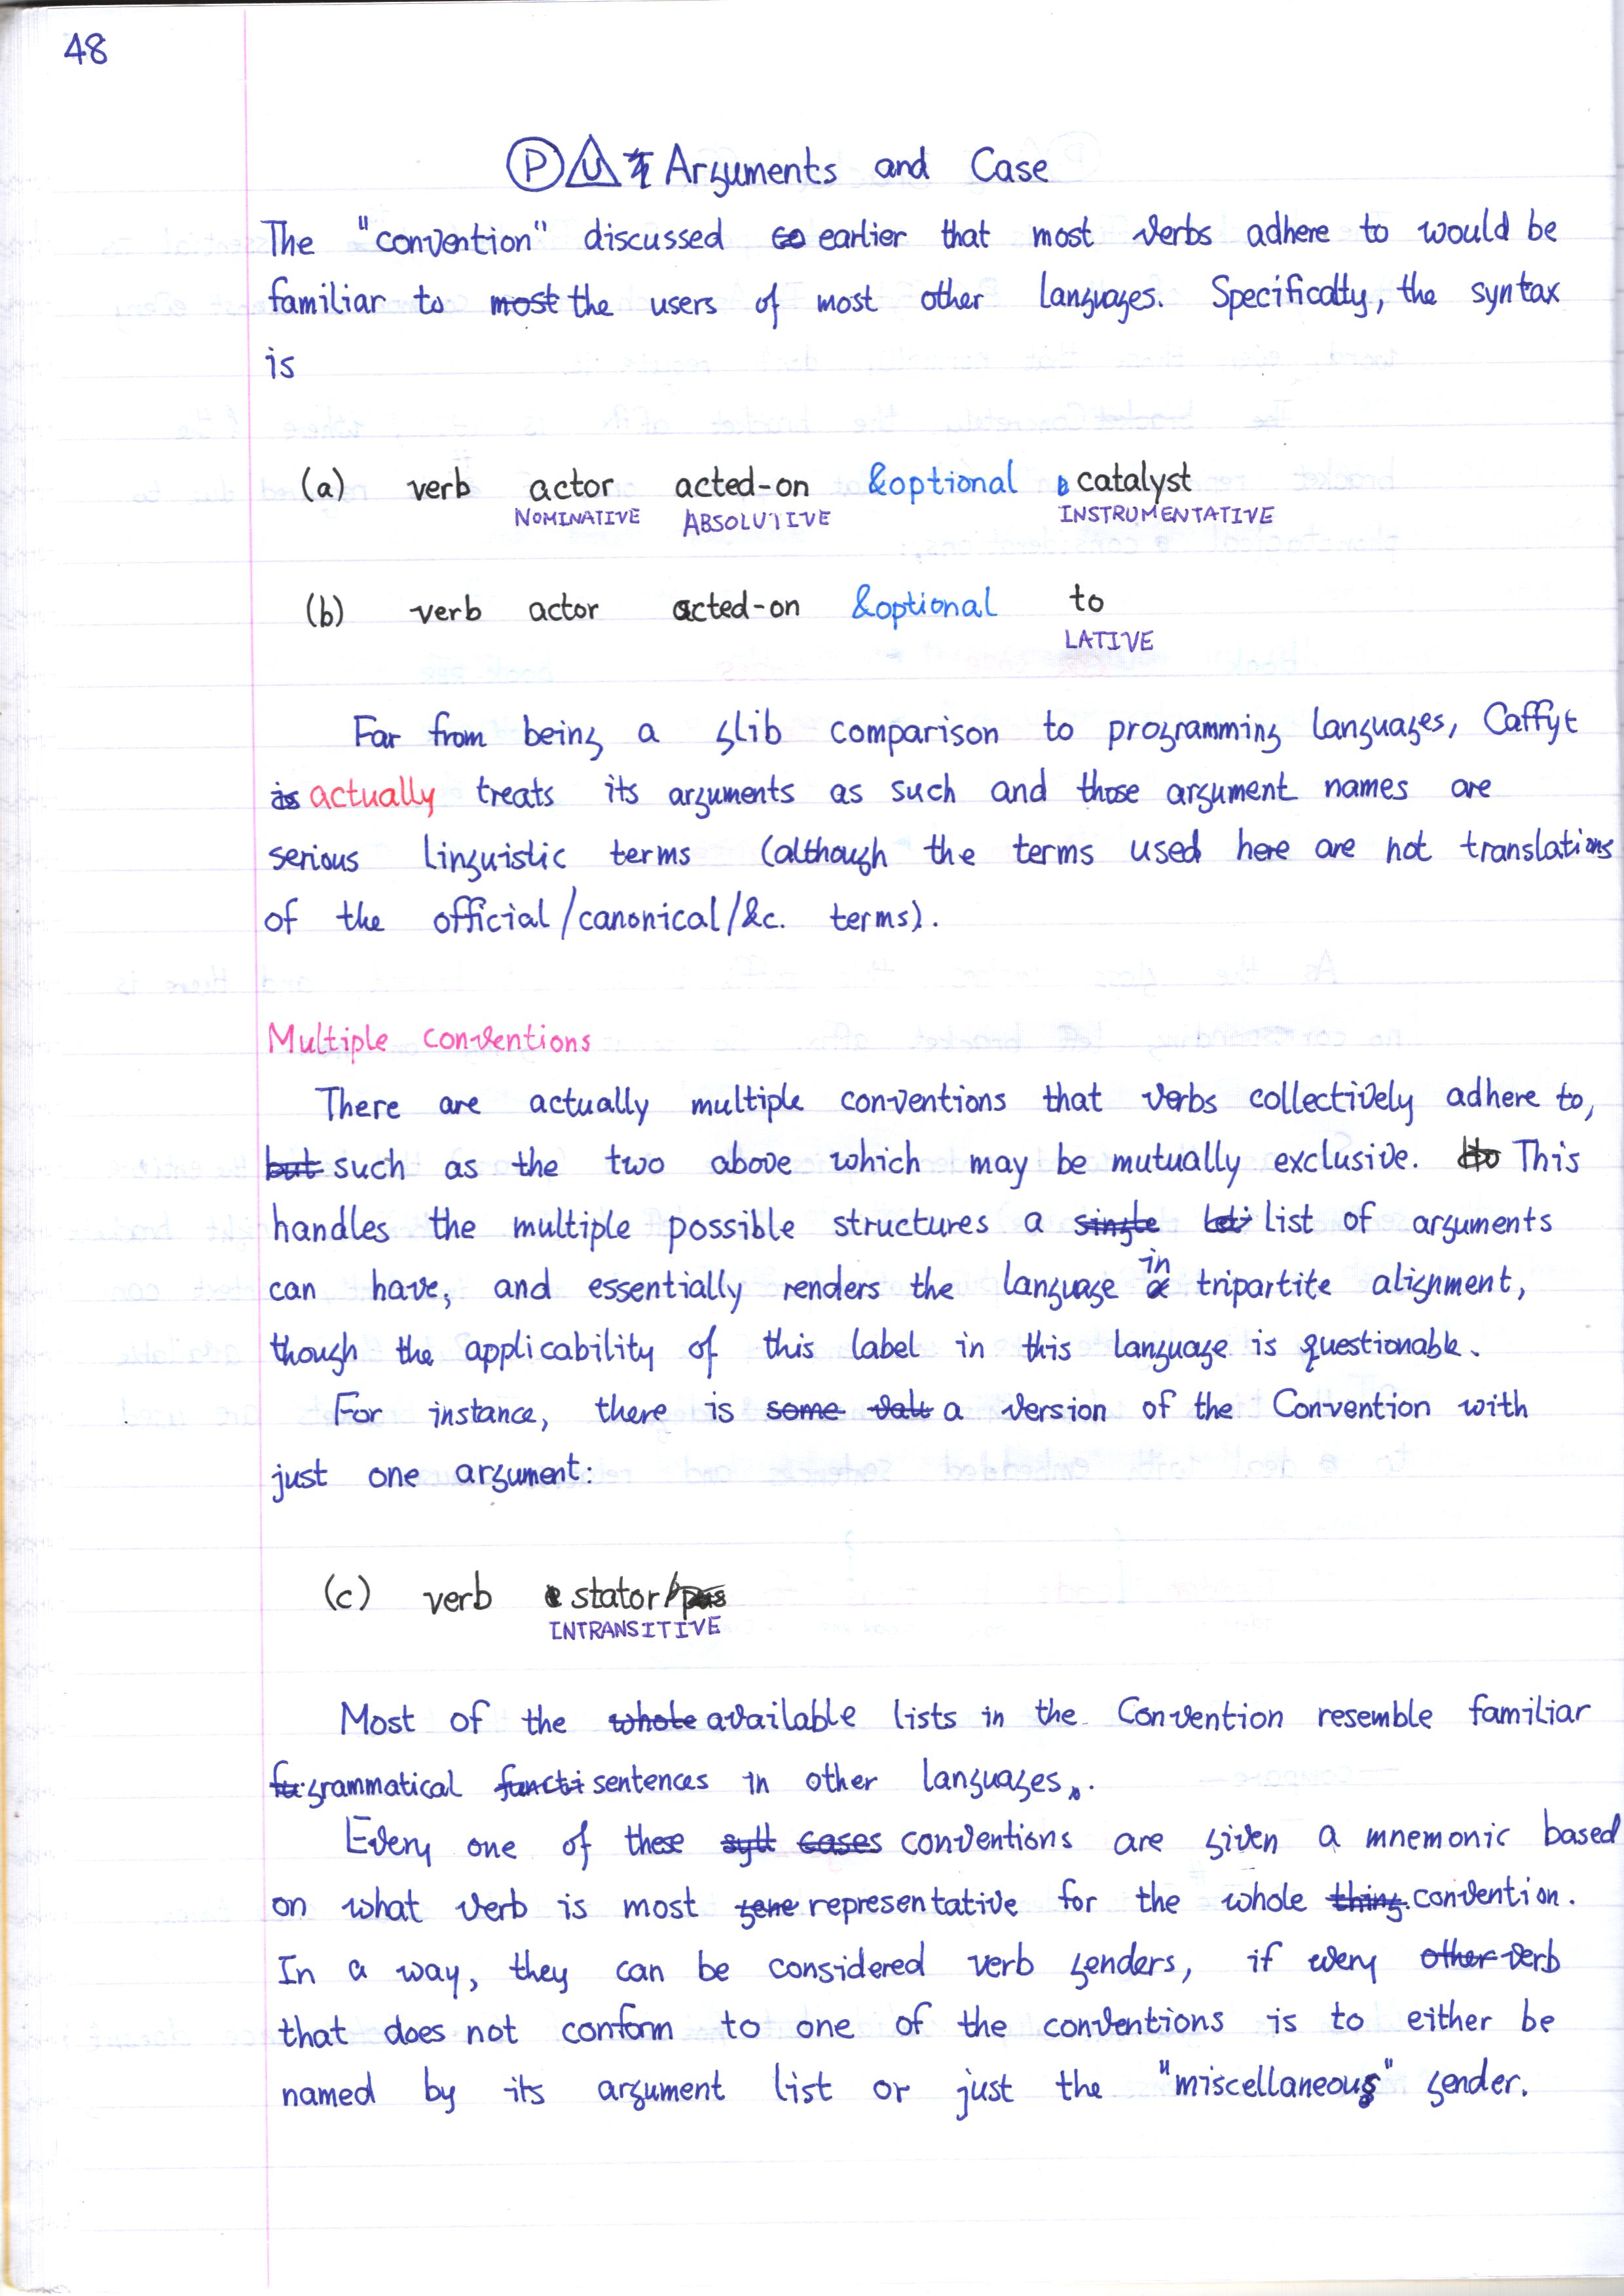 48
P U Arguments and Case
The "convention" discussed earlier that most verbs adhere to would be
familiar to most the users of most other languages. Specifically, the syntax
is
(a) verb actor acted-on &optional catalyst
NOMINATIVE ABSOLUTIVE INSTRUMENTATIVE
(b) verb actor acted-on &optional to
LATIVE
Far from being a glib comparison to programming languages, Caffyt
is actually treats its arguments as such and those argument names are
serious linguistic terms (although the terms used here are not translations
of the official/canonical/&c. terms).
Multiple conventions
There are actually multiple conventions that verbs collectively adhere to,
but such as the two above which may be mutually exclusive. This
handles the multiple possible structures a single list of arguments
can have, and essentially renders the language in tripartite alignment,
though the applicability of this label in this language is questionable.
For instance, there is some a version of the Convention with
just one argument:
(c) verb stator/
INTRANSITIVE
Most of the whole available lists in the Convention resemble familiar
grammatical functi sentences in other languages.
Every one of these cases conventions are given a mnemonic based
on what verb is most gene representative for the whole thing. convention.
In a way, they can be considered verb genders, if every other verb
that does not conform to one of the conventions is to either be
named by its argument list or just the "miscellaneous" gender.